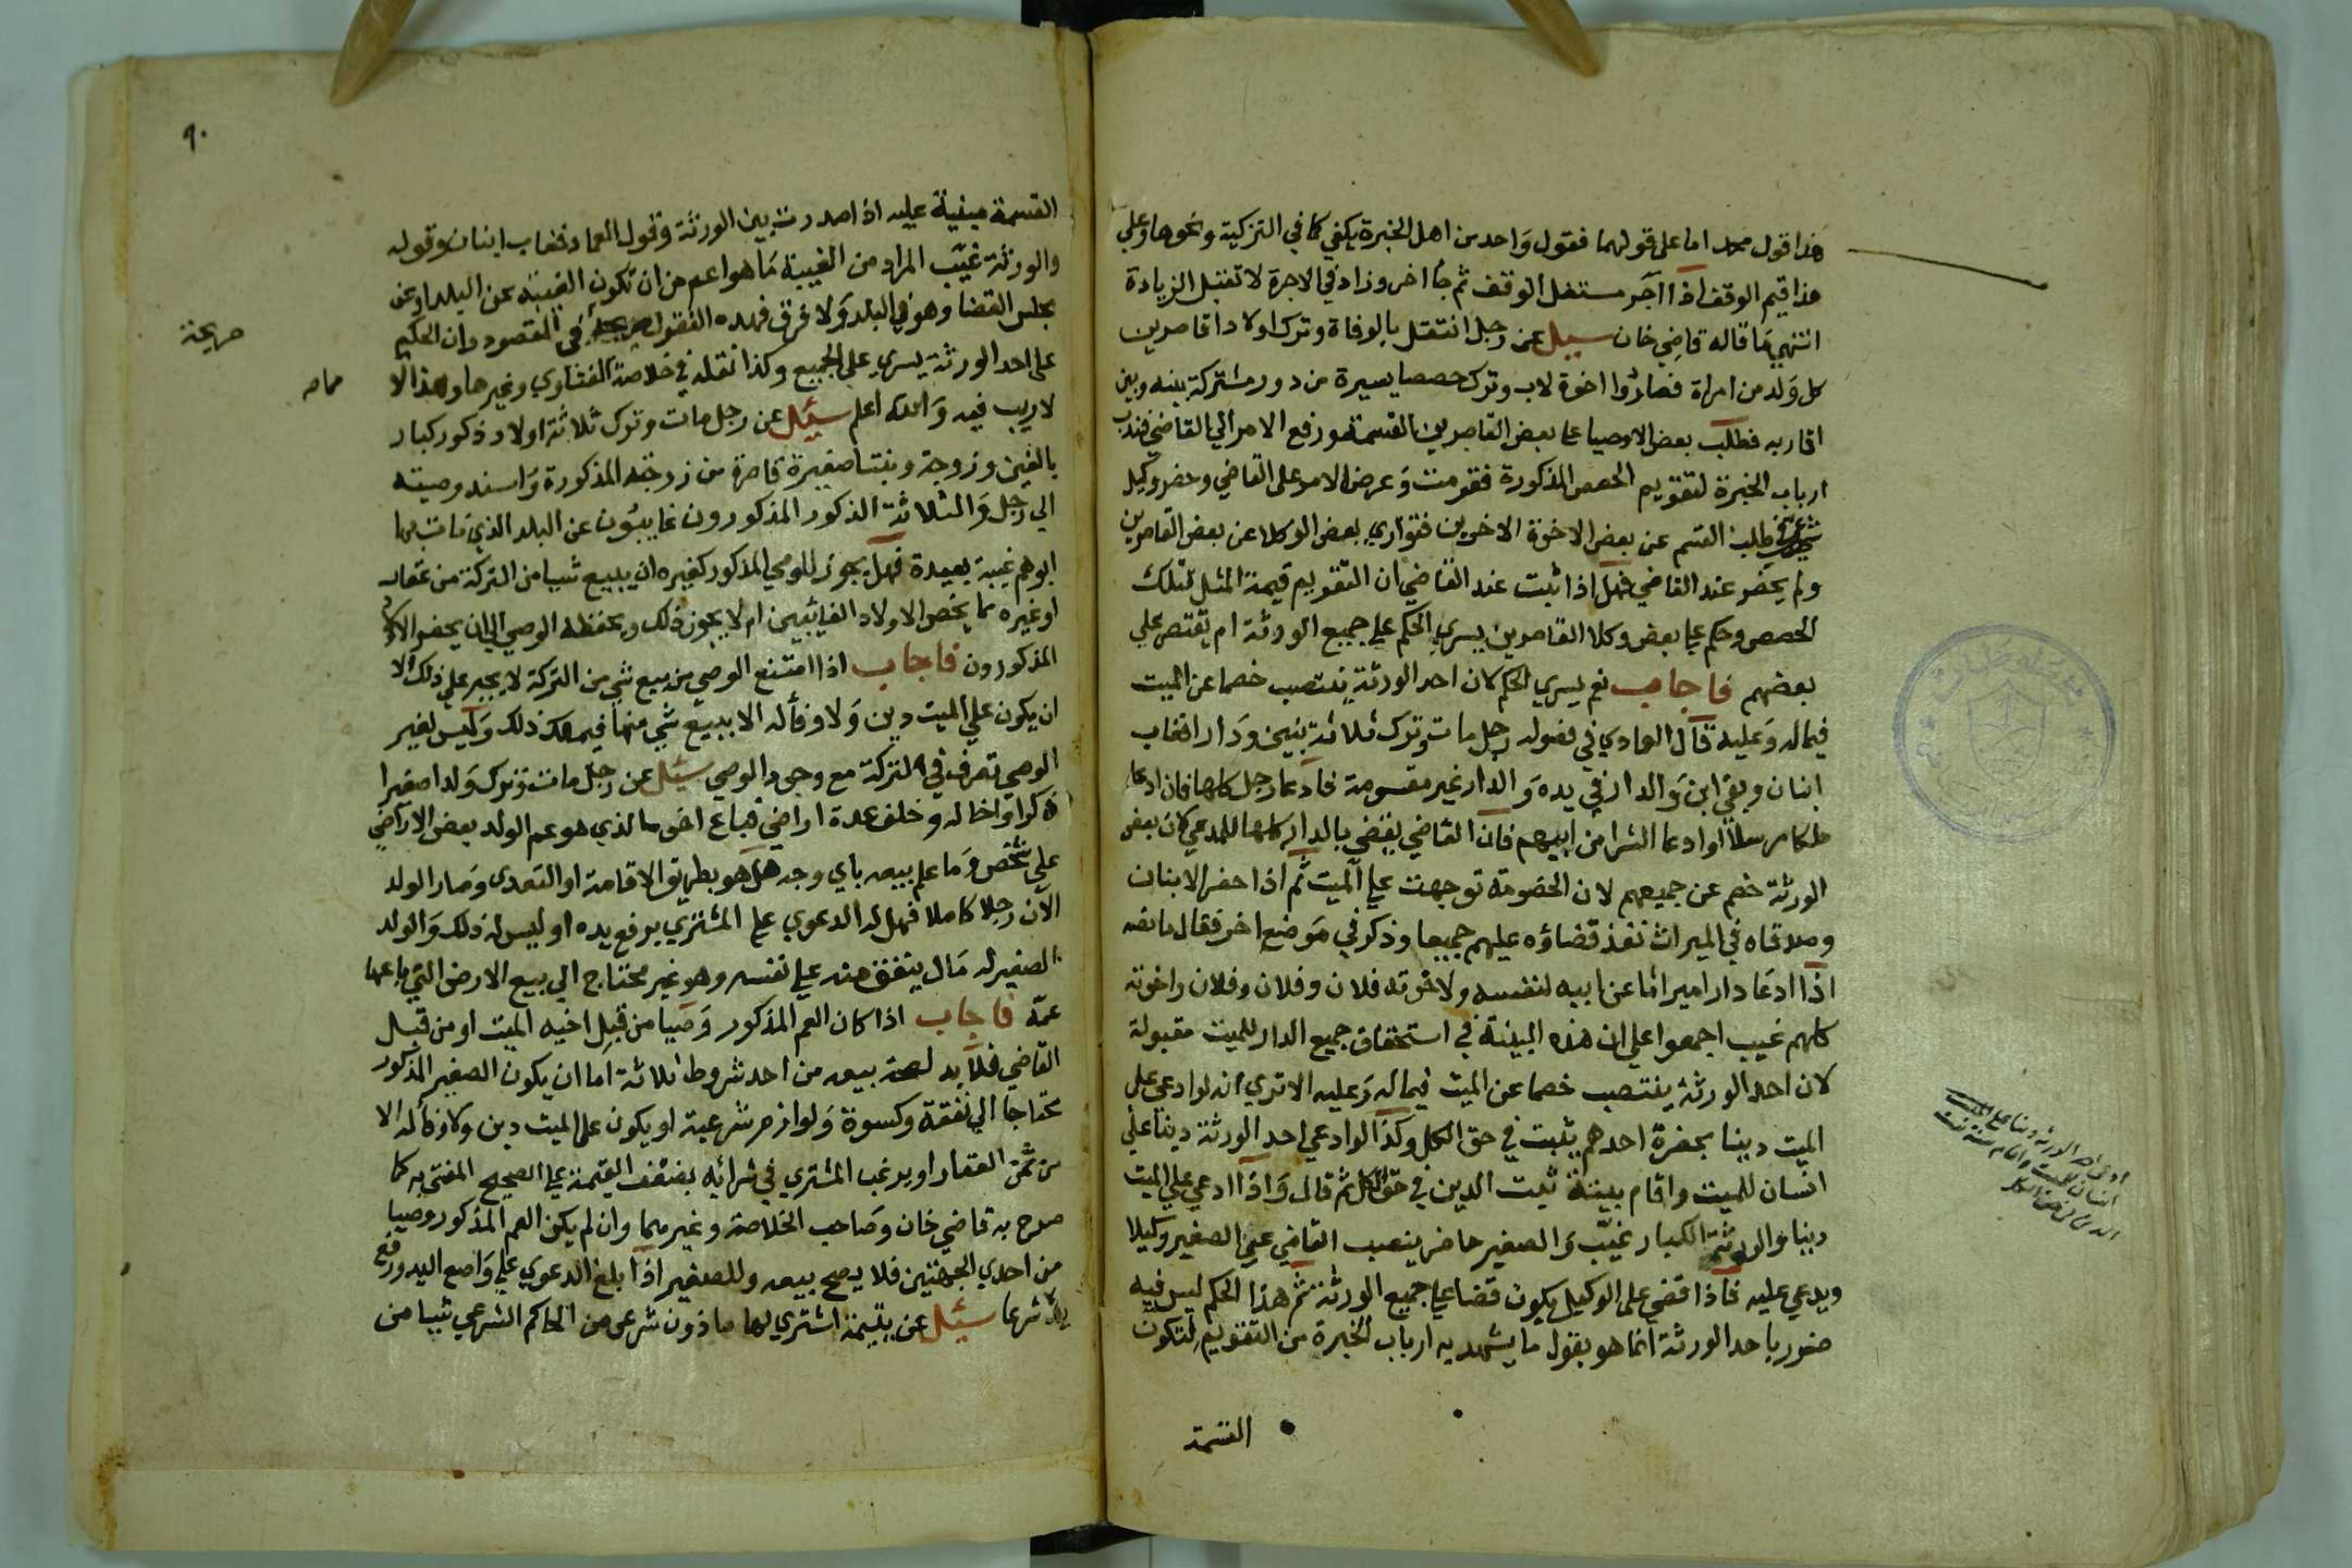 هذا قول محمد اما على قولهما فقول واحد من اهل الخبرة يكفي كما في التزكية ونحوها وعلي
هذا قيم الوقف اذا آجر مستغل الوقف ثم جا اخر وزاد في الاجرة لا تقبل الزيادة
انتهي ما قاله قاضي خان سيل عن رجل انتقل بالوفاة وترك اولادا قاصرين
كل ولد من امراة فصاروا اخوة لاب وترك حصصا يسيرة من دور مشتركة بينه وبين
اقاربه فطلب بعض الاوصيا علي بعض القاصرين القسمة ورفع الامر الي القاضي فندب
ارباب الخبرة لتقويم الحصص المذكورة فقومت وعرض الامر على القاضي وحضر وكيل
شرعي طلب القسم عن بعض الاخوة الاخرين فتواري بعض الوكلا عن بعض القاصرين
ولم يحضر عند القاضي فهل اذا ثبت عند القاضي ان التقويم قيمة المثل لتلك
الحصص وحكم علي بعض وكلا القاصرين يسري الحكم علي جميع الورثة ام يقتصر علي
بعضهم فاجاب نعم يسري الحكم لان احد الورثة ينتصب خصما عن الميت
فيما له وعليه قال العمادي في فصوله رجل مات وترك ثلاثة بنين ودارا فغاب
ابنان وبقي ابن والدار في يده والدار غير مقسومة فادعا رجل كلها فان ادعا
ملكا مرسلا او ادعا الشرا من ابيهم فان القاضي يقضي بالدار كلها للمدعي لان بعض
الورثة خصم عن جميعهم لان الخصومة توجهت علي الميت ثم اذا حضر الابنان
وصدقاه في الميراث نفذ قضاؤه عليهم جميعا وذكر في موضع اخر فقال ما نصه
اذا ادعا دارا ميراثا عن ابيه لنفسه ولاخوته فلان وفلان وفلان واخوته
كلهم غيب اجمعوا على ان هذه البينة في استحقاق جميع الدار للميت مقبولة
لان احد الورثة ينتصب خصما عن الميت فيما له وعليه الا تري انه لو ادعى على
الميت دينا بحضرة احدهم يثبت في حق الكل وكذا لو ادعي احد الورثة دينا على
انسان للميت واقام بينة ثبت الدين في حق الكل ثم قال واذا ادعي علي الميت
دينا والورثة الكبار غيب والصغير حاضر ينصب القاضي عن الصغير وكيلا
ويدعي عليه فاذا قضي على الوكيل يكون قضا علي جميع الورثة ثم هذا الحكم ليس فيه
ضرر باحد الورثة انما هو بقول ما يشهد به ارباب الخبرة من التقويم لتكون
القسمة
ادعى احد الورثة دينا على
انسان للميت واقام بينة ثبت
الدين في حق الكل
٩٠
القسمة مبنية عليه اذا صدرت بين الورثة وقول العماد فغاب ابنان وقوله
والورثة غيب المراد من الغيبة ما هو اعم من ان تكون الغيبة عن البلد او عن
مجلس القضا وهو في البلد ولا فرق فهذه النقول صريحة في المقصود وان الحكم
صريحة
على احد الورثة يسري على الجميع وكذا نقله في خلاصة الفتاوي وغيرها وهذا لا
لا ريب فيه والله اعلم سيل عن رجل مات وترك ثلاثة اولاد ذكور كبار
بالغين وزوجة وبنتا صغيرة قاصرة من زوجته المذكورة واسند وصيته
الي رجل والثلاثة الذكور المذكورون غايبون عن البلد الذي مات بها
ابوهم غيبة بعيدة فهل يجوز للوصي المذكور كغيره ان يبيع شيا من التركة من عقار
او غيره مما يخص الاولاد الغائبين ام لا يجوز ذلك ويحفظه الوصي الي ان يحضر الاولاد
المذكورون فاجاب اذا امتنع الوصي من بيع شي من التركة لا يجبر علي ذلك الا
ان يكون علي الميت دين ولا وفأ له الا ببيع شي منها فيملك ذلك وليس لغير
الوصي تصرف في التركة مع وجود الوصي سئل عن رجل مات وترك ولدا صغيرا
ذكرا واخا له وخلف عدة اراضي فباع اخوه الذي هو عم الولد بعض الاراضي
علي شخص وما علم بيعه باي وجه هل هو بطريق الاقامة او التعدي وصار الولد
الآن رجلا كاملا فهل له الدعوي علي المشتري برفع يده او ليس له ذلك والولد
الصغير له مال ينفق منه علي نفسه وهو غير محتاج الي بيع الارض التي باعها
عمه فاجاب اذا كان العم المذكور وصيا من قبل اخيه الميت او من قبل
القاضي فلا بد لصحة بيعه من احد شروط ثلاثة اما ان يكون الصغير المذكور
محتاجا الي نفقة وكسوة ولوازم شرعية او يكون على الميت دين ولا وفأ له الا
من ثمن العقار او يرغب المشتري في شرائه بضعف القيمة علي الصحيح المفتى به كما
صرح به قاضي خان وصاحب الخلاصة وغيرهما وان لم يكن العم المذكور وصيا
من احدي الجهتين فلا يصح بيعه وللصغير اذا بلغ الدعوي علي واضع اليد ورفع
يده شرعا سئل عن يتيمة اشتري لها ماذون شرعي من الحاكم الشرعي شيا من